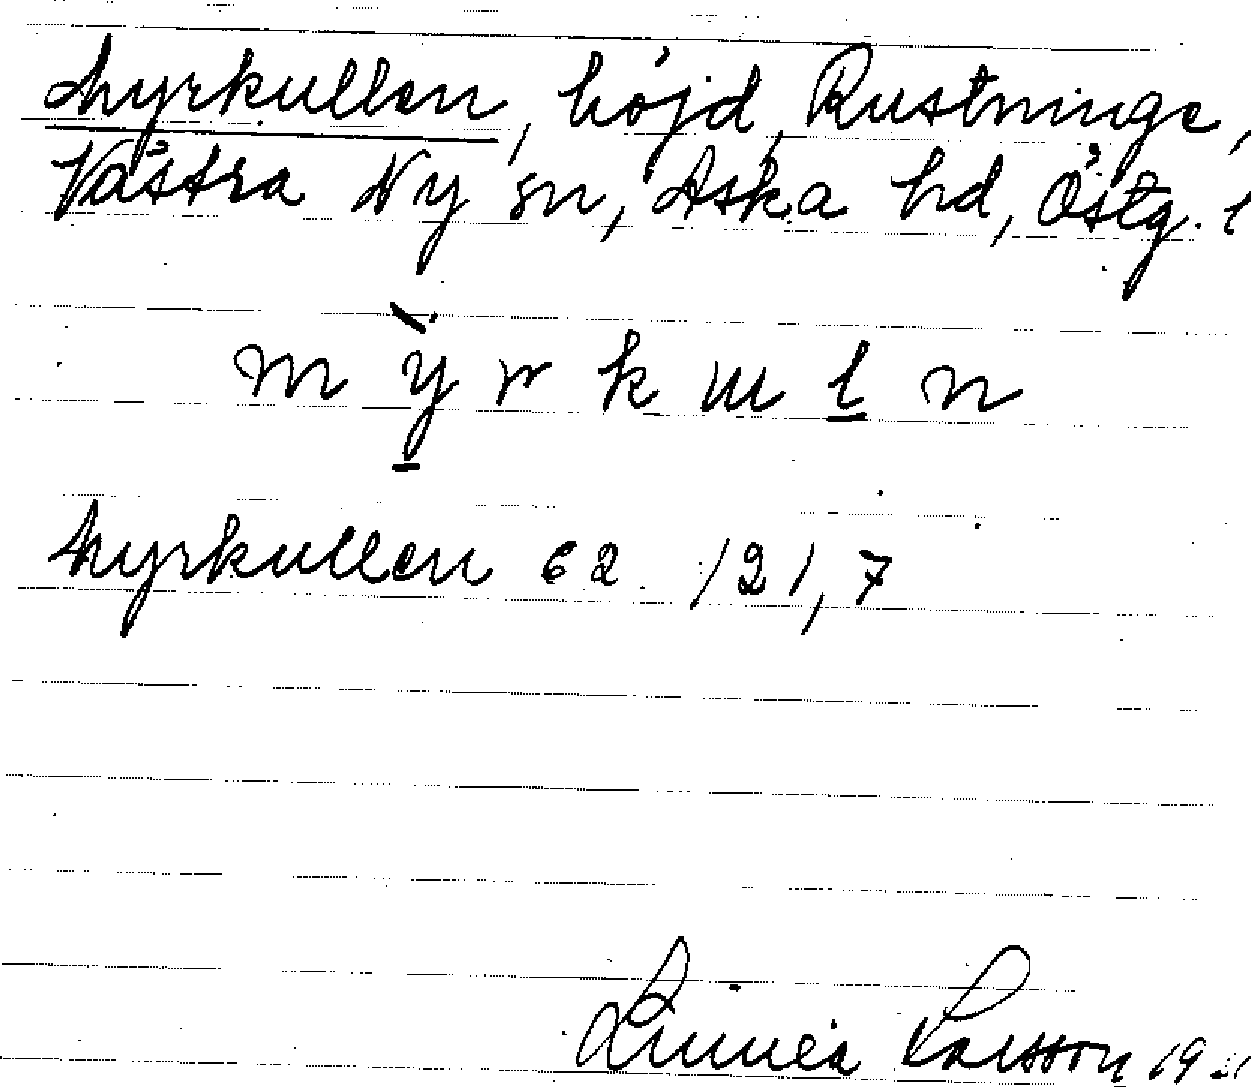 Myrkullen, höjd, Rustninge,
Västra Ny sn, Aska hd, Östg. l
m y r k u l n
Myrkullen 62 121,7
Linnéa Larsson